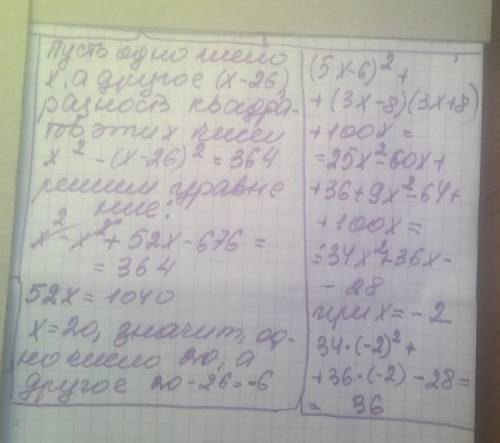 Пусть одно число
x, а другое (x-26),
разность квадра-
тов этих чисел
x² - (x-26)² = 364
решим уравне
ние:
x² - x² + 52x - 676 =
= 364
52x = 1040
x=20, значит, од-
но число 20, а
другое 20-26=-6
(5x-6)² +
+(3x-8)(3x+8)
+100x =
=25x²-60x+
+36+9x²-64+
+100x=
=34x²+36x-
-28
при x = -2
34·(-2)²+
+36·(-2)-28=
= 36